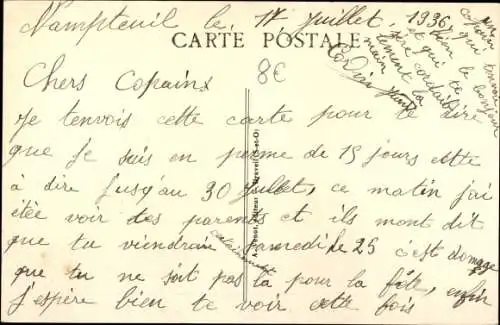 Nampteuil le, 17 juillet, 1936,
CARTE POSTALE
8€
Chers Copains
Je tenvois cette carte pour te dire
que je suis en perme de 15 jours cette
à dire jusq'au 30 juillet, ce matin j'ai
étée voir des parents et ils mont dit
que tu viendrai Samedi le 25 c'est domage
que tu ne soit pas là pour la fête, enfin
J'espère bien te voir cette fois
un
copain qui tenvoi
bien le bonjour
et qui te
sere cordiale
tement la
main